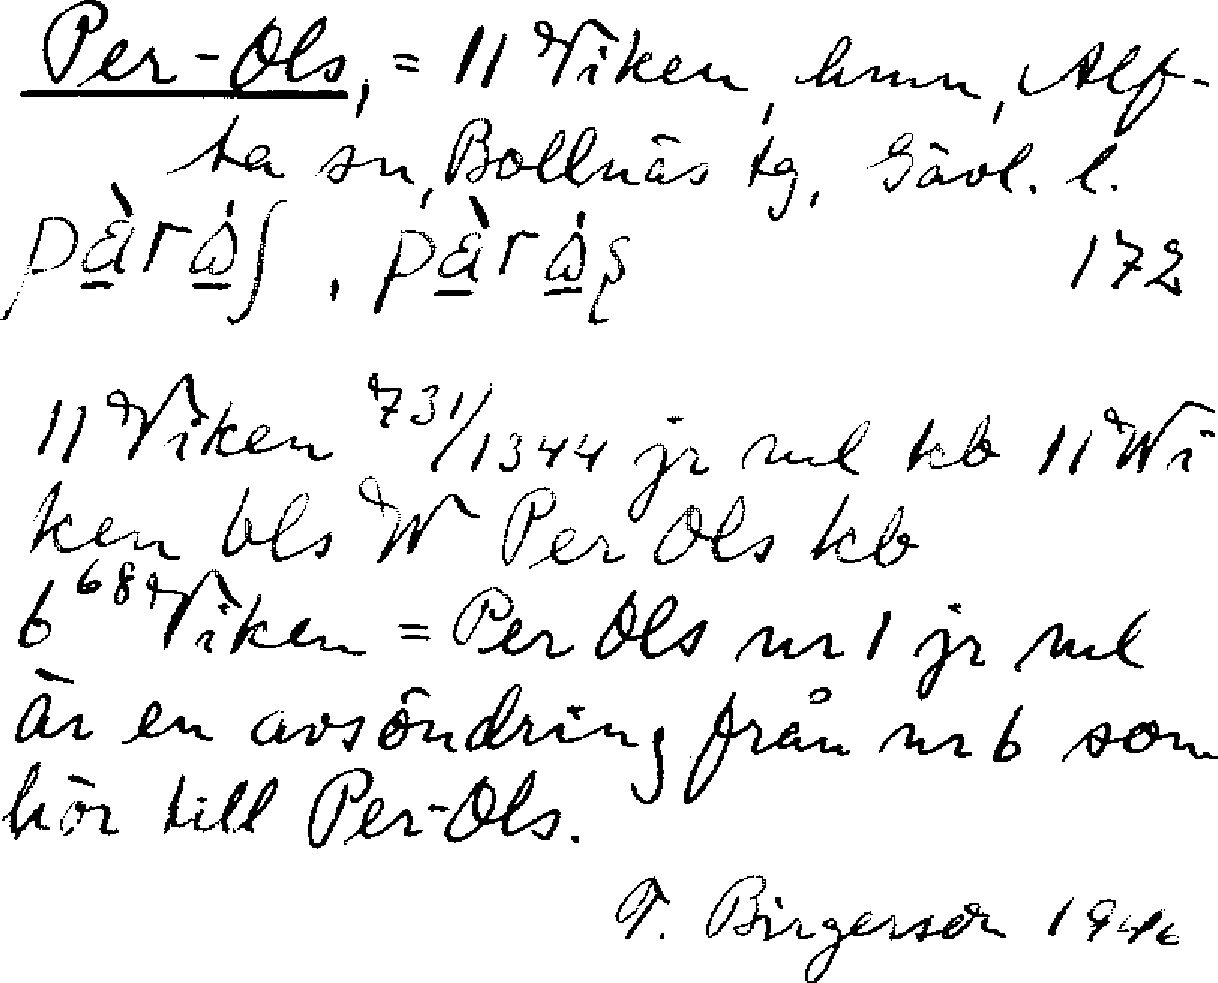 Per-Ols, = 11 Viken, hmn, Alf-
ta sn, Bollnäs tg, Gävl. l.
172
11 Viken 731/1344 jr ml kb 11 Wi
ken bls W Per Ols kb
6 Viken = Per Ols nr 1 jr ml
är en avsöndring från nr 6 som
hör till Per-Ols.
T. Birgerson 1946